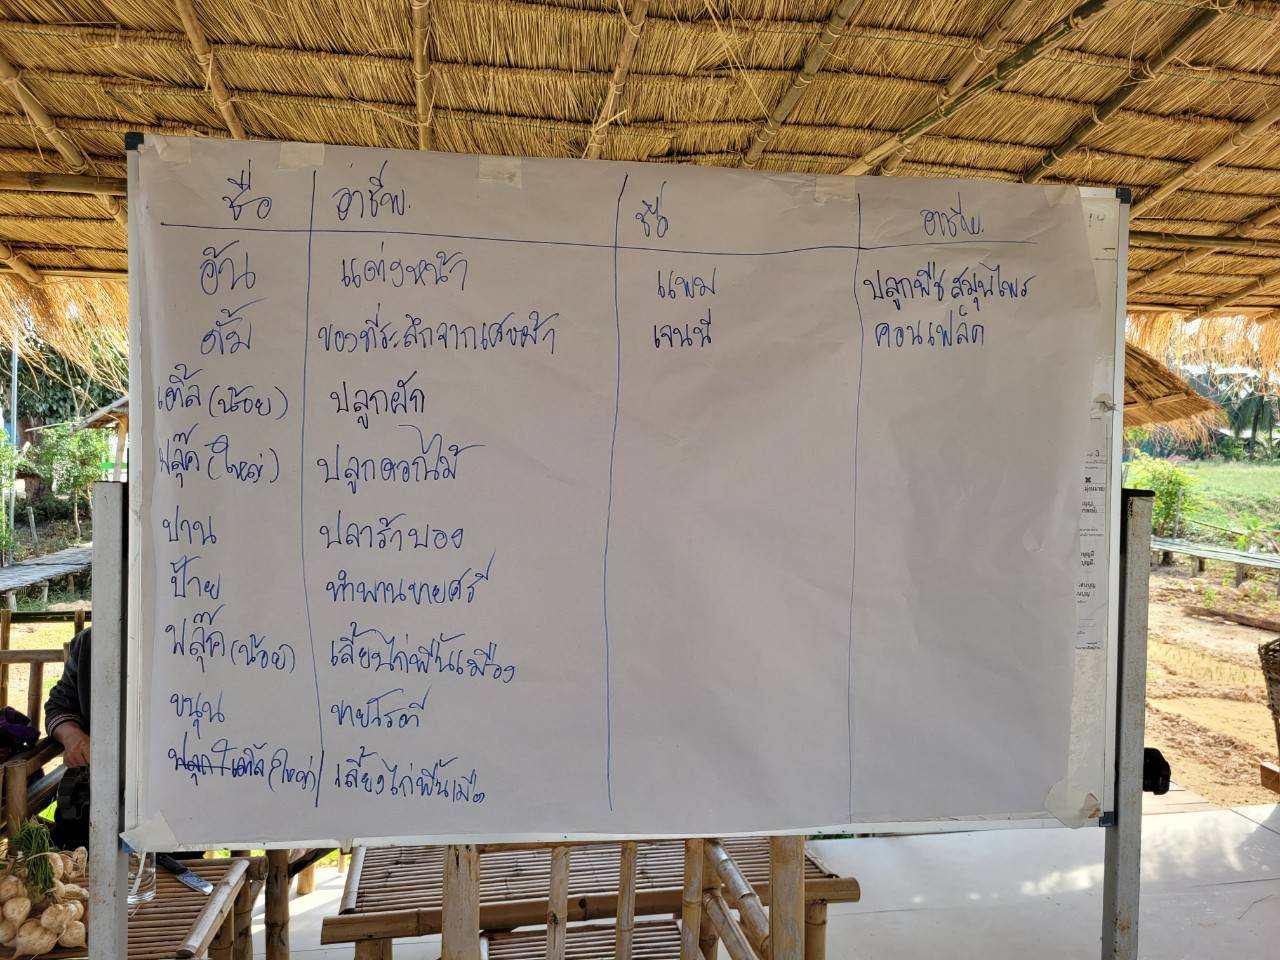 ชื่อ อาชีพ. ชื่อ อาชีพ.
อ้น แต่งหน้า แพม ปลูกพืชสมุนไพร
ตั้ม ของที่ระลึกจากเศษผ้า เจนนี่ คอนเฟล็ค
เติ้ล (น้อย) ปลูกผัก
ฟลุ๊ค (ใหญ่) ปลูกดอกไม้
ปาน ปลาร้าบอง
ป้าย ทำพานบายศรี
ฟลุ๊ค (น้อย) เลี้ยงไก่พื้นเมือง
ขนุน ขายโรตี
เติ้ล (ใหญ่) เลี้ยงไก่พื้นเมือง